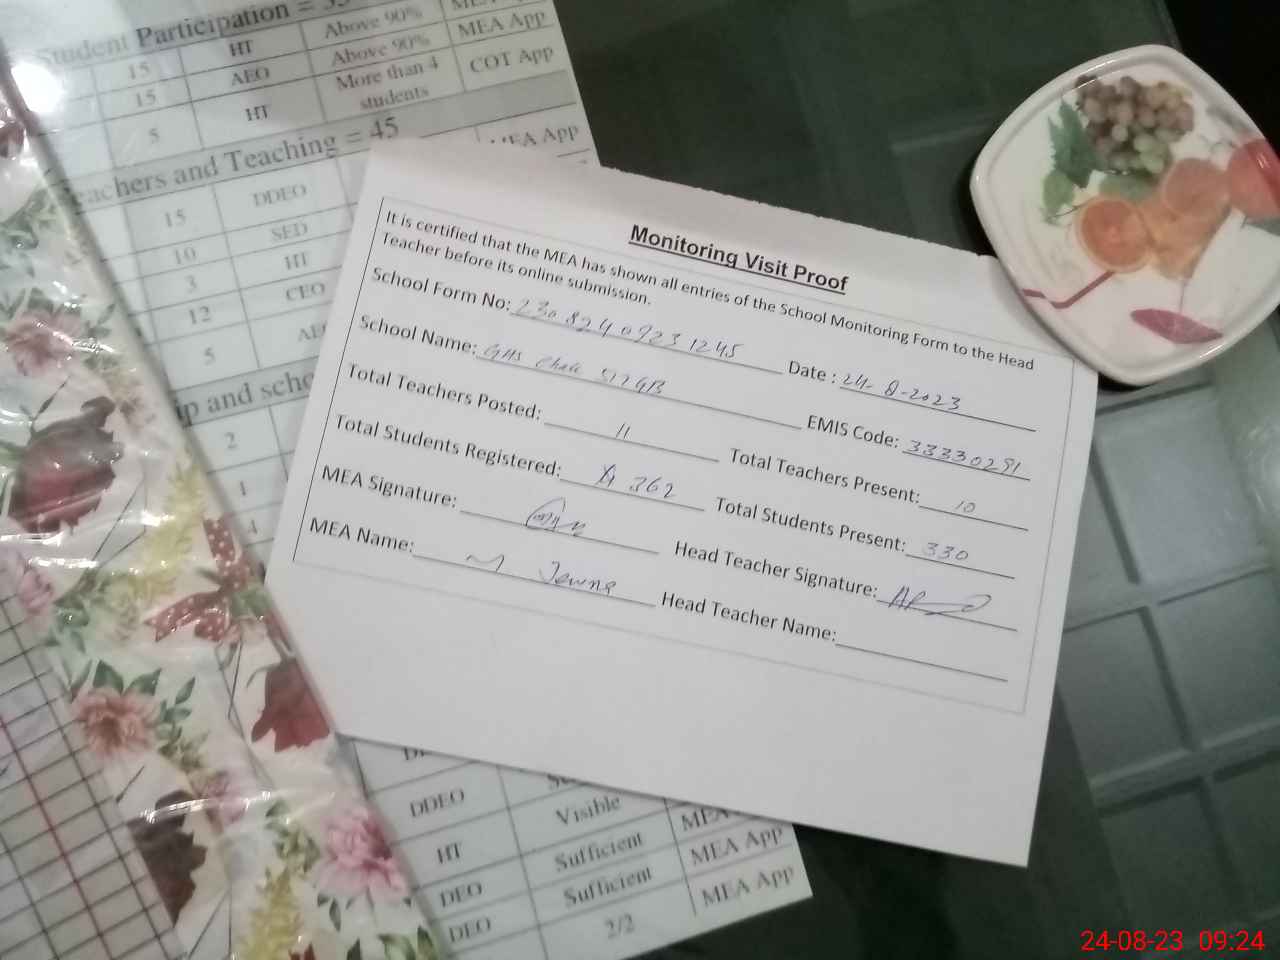 Student Participation =
15 HT Above 90%
15 AEO Above 90% MEA App
5 HT More than 4 students COT App
Teachers and Teaching = 45
15 DDEO MEA App
10 SED
3 HT
12 CEO
5
2
1
4
Monitoring Visit Proof
It is certified that the MEA has shown all entries of the School Monitoring Form to the Head
Teacher before its online submission.
School Form No: 23082409231245 Date : 24-8-2023
School Name: GHS Chak 517GB EMIS Code: 33330291
Total Teachers Posted: 11 Total Teachers Present: 10
Total Students Registered: 362 Total Students Present: 330
MEA Signature: Head Teacher Signature:
MEA Name: Head Teacher Name:
DDEO Visible
HT Sufficient MEA App
DEO Sufficient MEA App
DEO 2/2
24-08-23 09:24